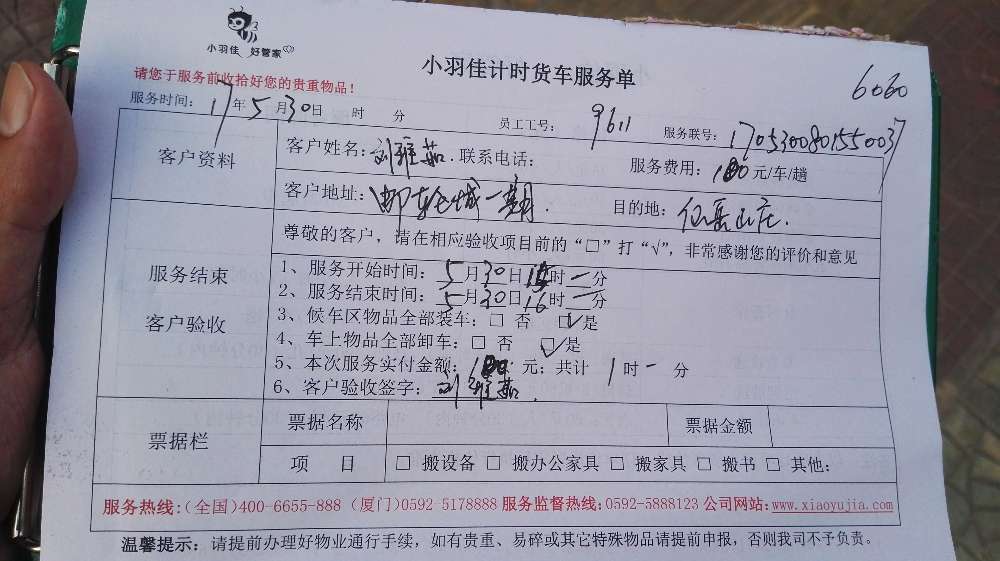 小羽佳 好管家
小羽佳计时货车服务单
6060
请您于服务前收拾好您的贵重物品！
服务时间：17年5月30日 时 分 员工工号：9611 服务联号：17053008015500037
客户资料
客户姓名：刘雅茹 联系电话： 服务费用：100元/车/趟
客户地址：邮轮城一期 目的地：仙岳山庄
尊敬的客户，请在相应验收项目前的“□”打“√”，非常感谢您的评价和意见
服务结束
客户验收
1、服务开始时间：5月30日15时一分
2、服务结束时间：5月30日16时一分
3、候车区物品全部装车：□ 否 ☑是
4、车上物品全部卸车：□ 否 ☑是
5、本次服务实付金额：100元；共计 1时一分
6、客户验收签字：刘雅茹
票据栏
票据名称 票据金额
项 目 □ 搬设备 □ 搬办公家具 □ 搬家具 □ 搬书 □ 其他：
服务热线：（全国）400-6655-888（厦门）0592-5178888 服务监督热线：0592-5888123 公司网站：www.xiaoyujia.com
温馨提示：请提前办理好物业通行手续，如有贵重、易碎或其它特殊物品请提前申报，否则我司不予负责。